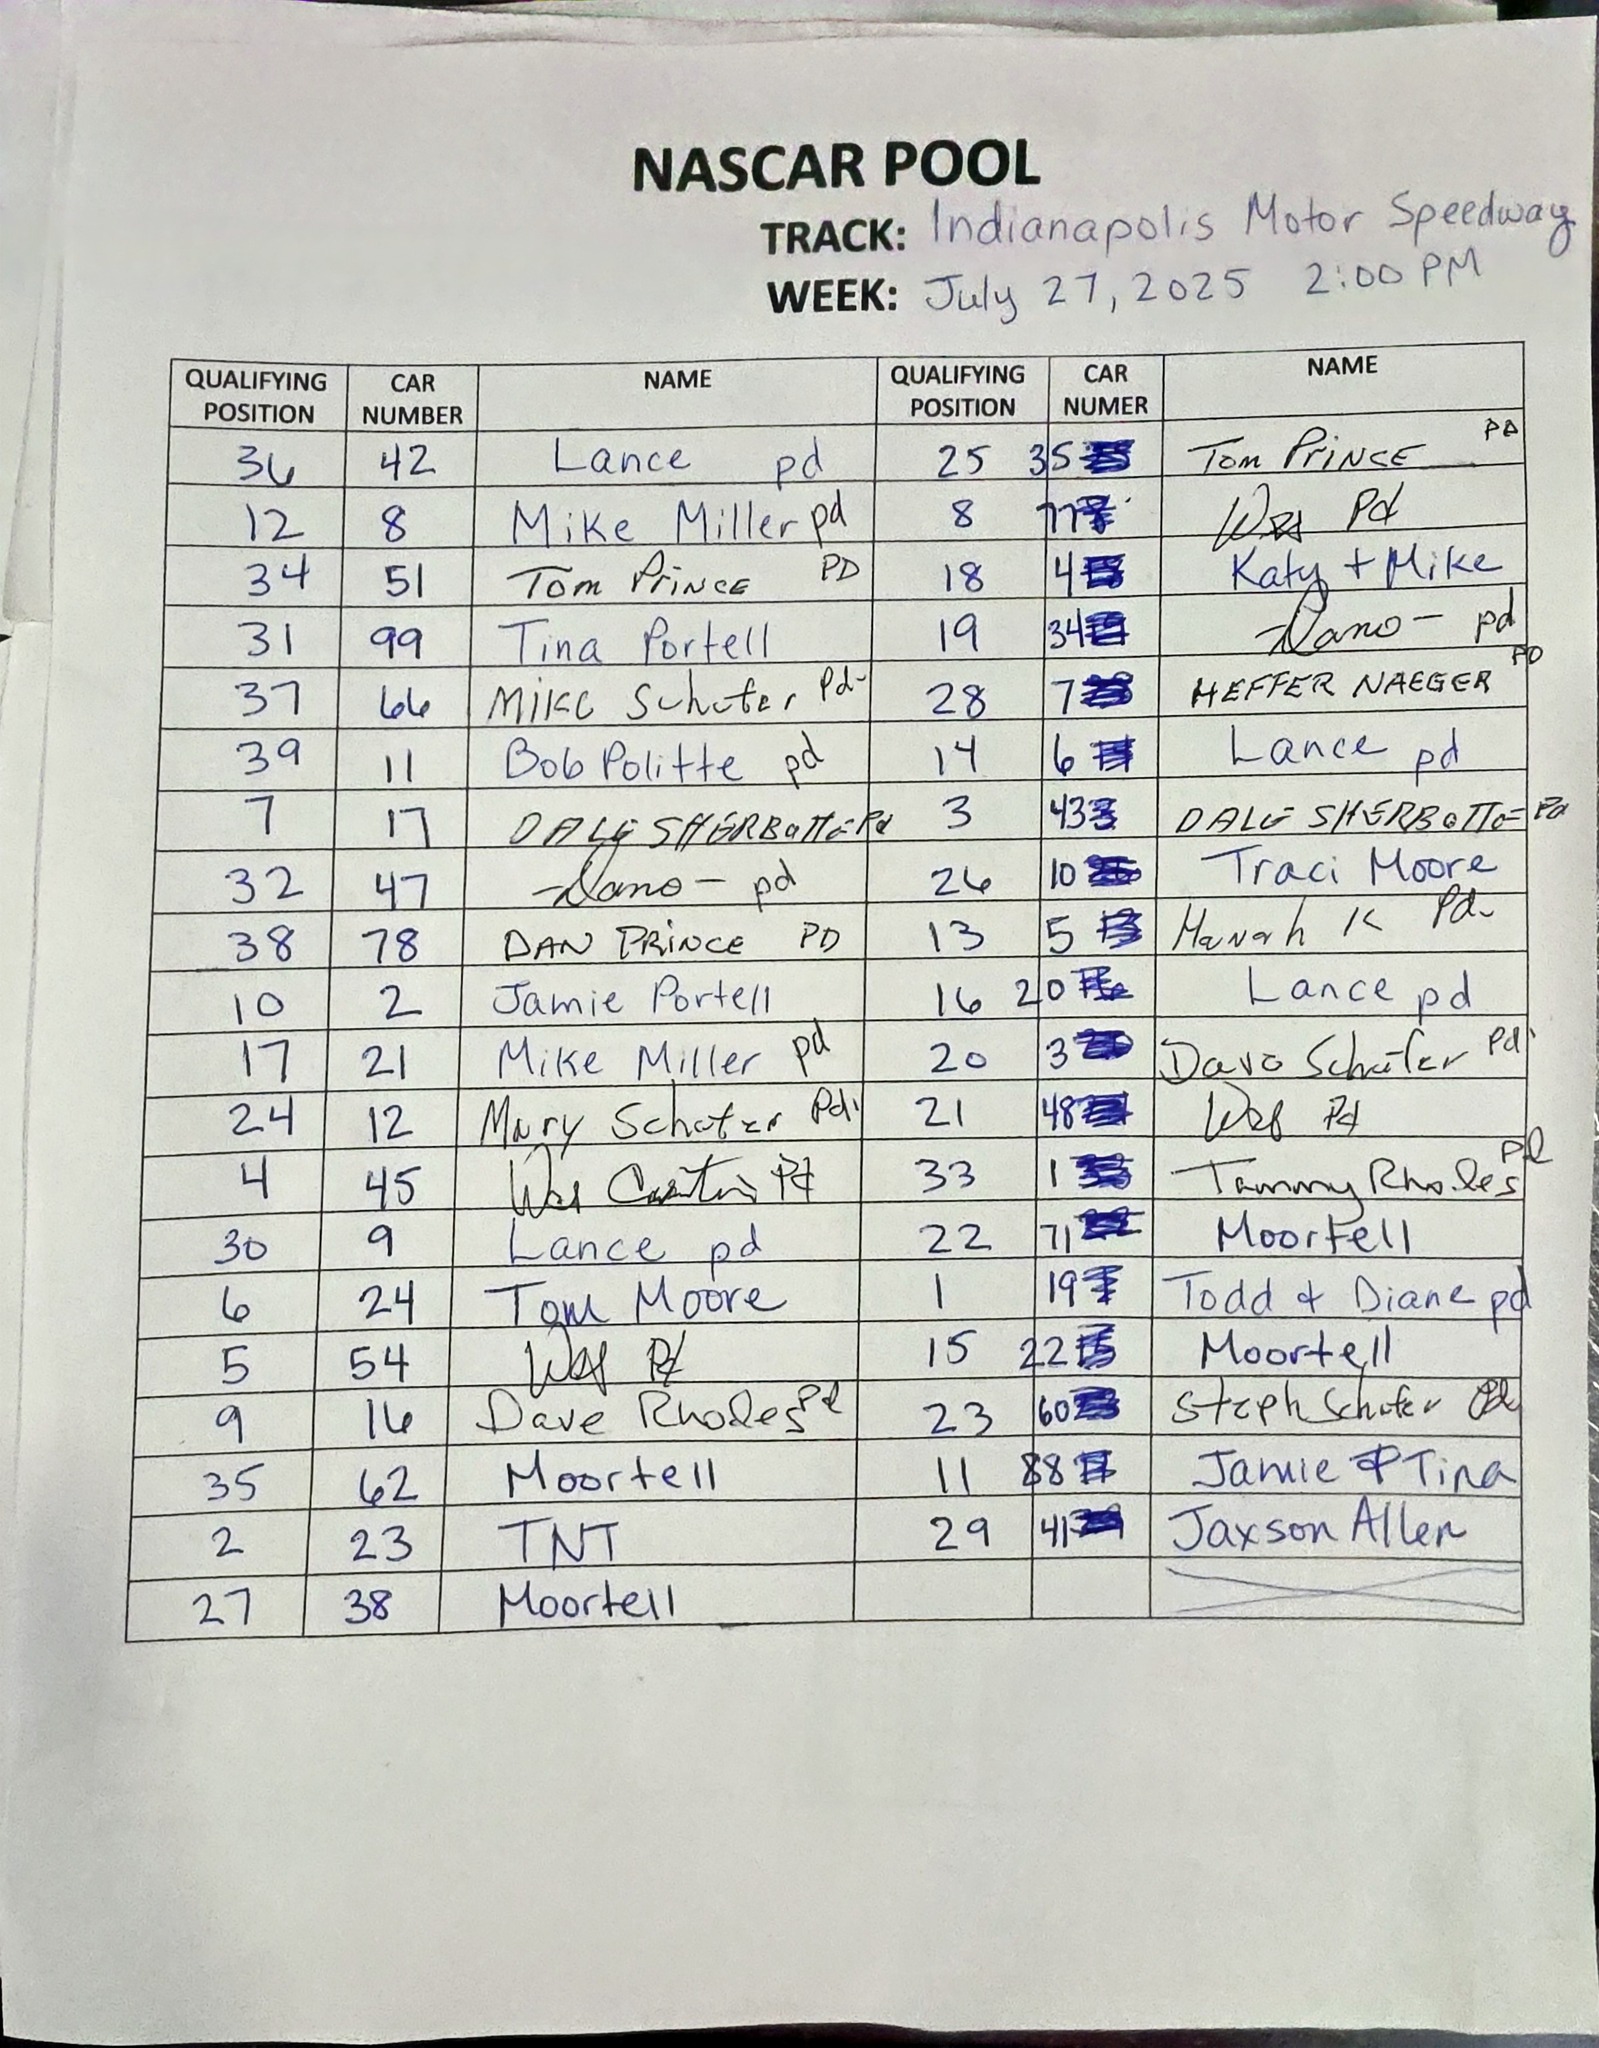 NASCAR POOL
TRACK: Indianapolis Motor Speedway
WEEK: July 27, 2025 2:00 PM
QUALIFYING POSITION CAR NUMBER NAME QUALIFYING POSITION CAR NUMER NAME
36 42 Lance pd 25 35 Tom PRiNCE PD
12 8 Mike Miller pd 8 77 Wes Pd
34 51 Tom PRiNCE PD 18 4 Katy + Mike
31 99 Tina Portell 19 34 -Nano- pd
37 66 Mike Schafer Pd- 28 7 HEFFER NAEGER PD
39 11 Bob Politte pd 14 6 Lance pd
7 17 DALE SHERBOTTE Pd 3 43 DALE SHERBOTTE Pd
32 47 -Nano- pd 26 10 Traci Moore
38 78 DAN PRiNCE PD 13 5 Hanah K Pd-
10 2 Jamie Portell 16 20 Lance pd
17 21 Mike Miller pd 20 3 Dave Schafer Pd
24 12 Mary Schafer Pd 21 48 Wes Pd
4 45 Wes Pd 33 1 Tammy Rhodes Pd
30 9 Lance pd 22 71 Moortell
6 24 Tom Moore 1 19 Todd & Diane pd
5 54 Wes Pd 15 22 Moortell
9 16 Dave Rhodes Pd 23 60 Steph Schafer Pd
35 62 Moortell 11 88 Jamie & Tina
2 23 TNT 29 41 Jaxson Allen
27 38 Moortell